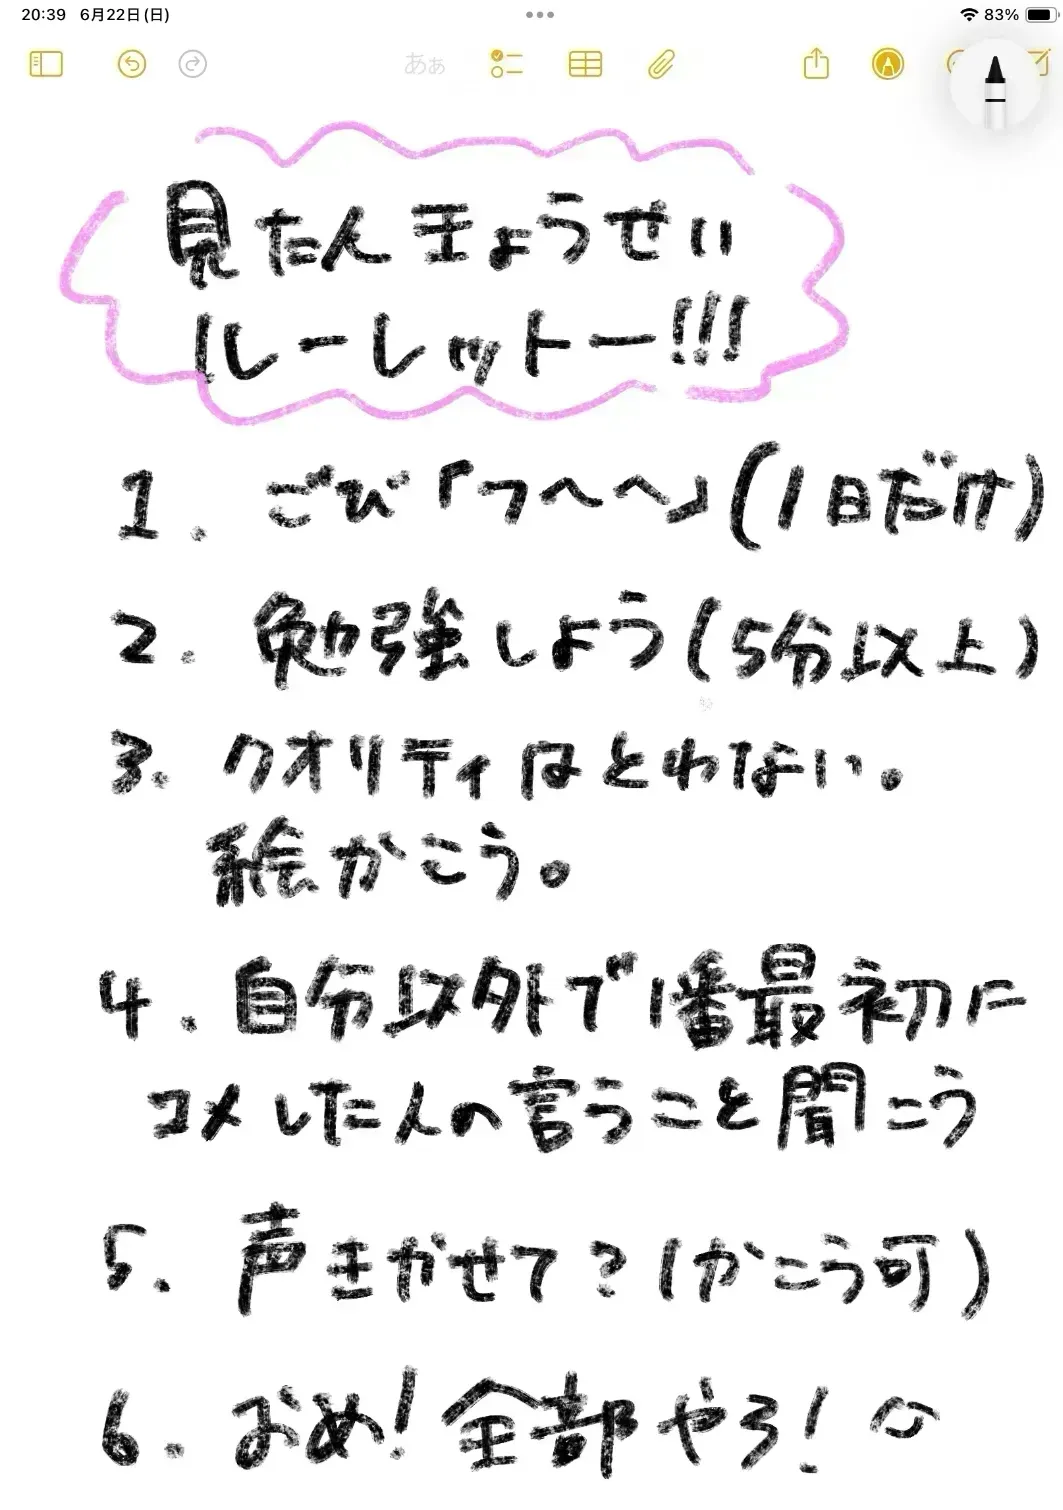 20:39 6月22日(日)
83%
あぁ
見たんきょうせい
ルーレットー!!!
1. ごび「フへへ」(1日だけ)
2. 勉強しよう(5分以上)
3. クオリティはとわない。
絵かこう。
4. 自分以外で1番最初に
コメした人の言うこと聞こう
5. 声きかせて?(かこう可)
6. おめ!全部やろ!